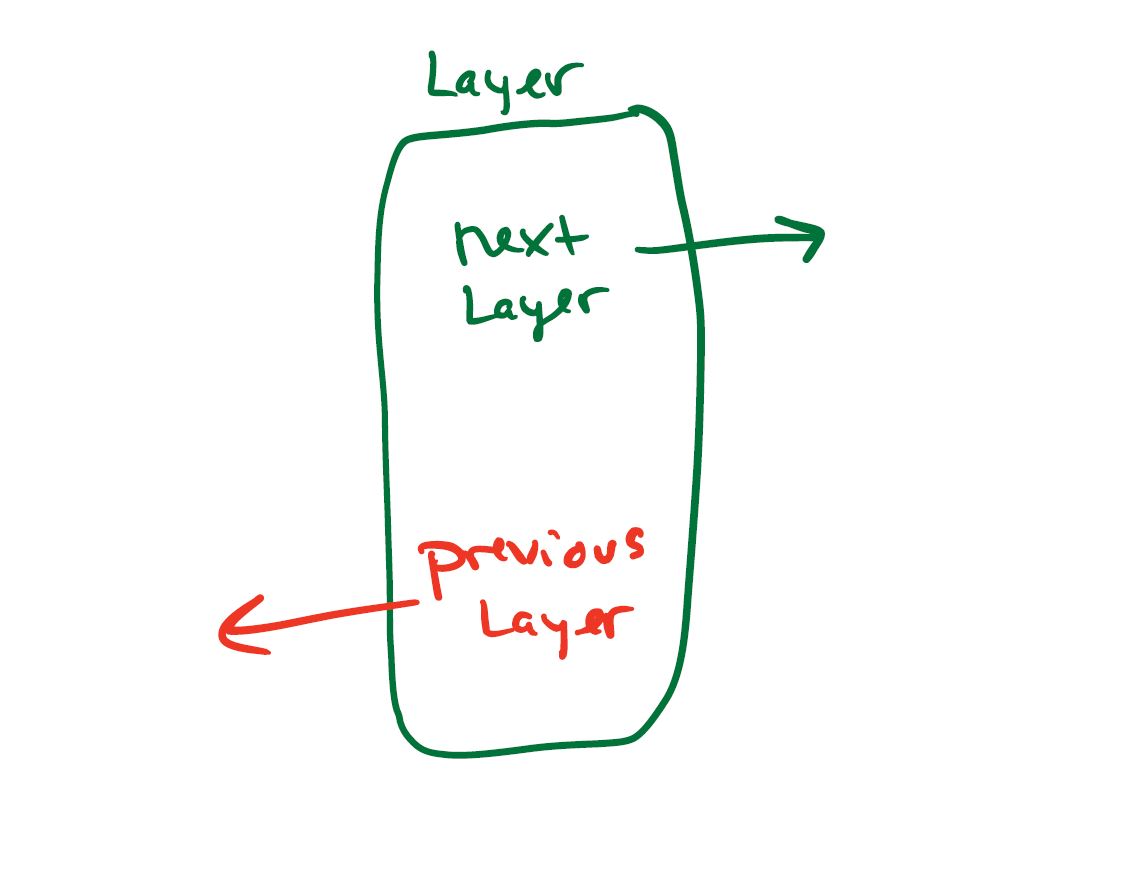 Layer
next
Layer
previous
Layer